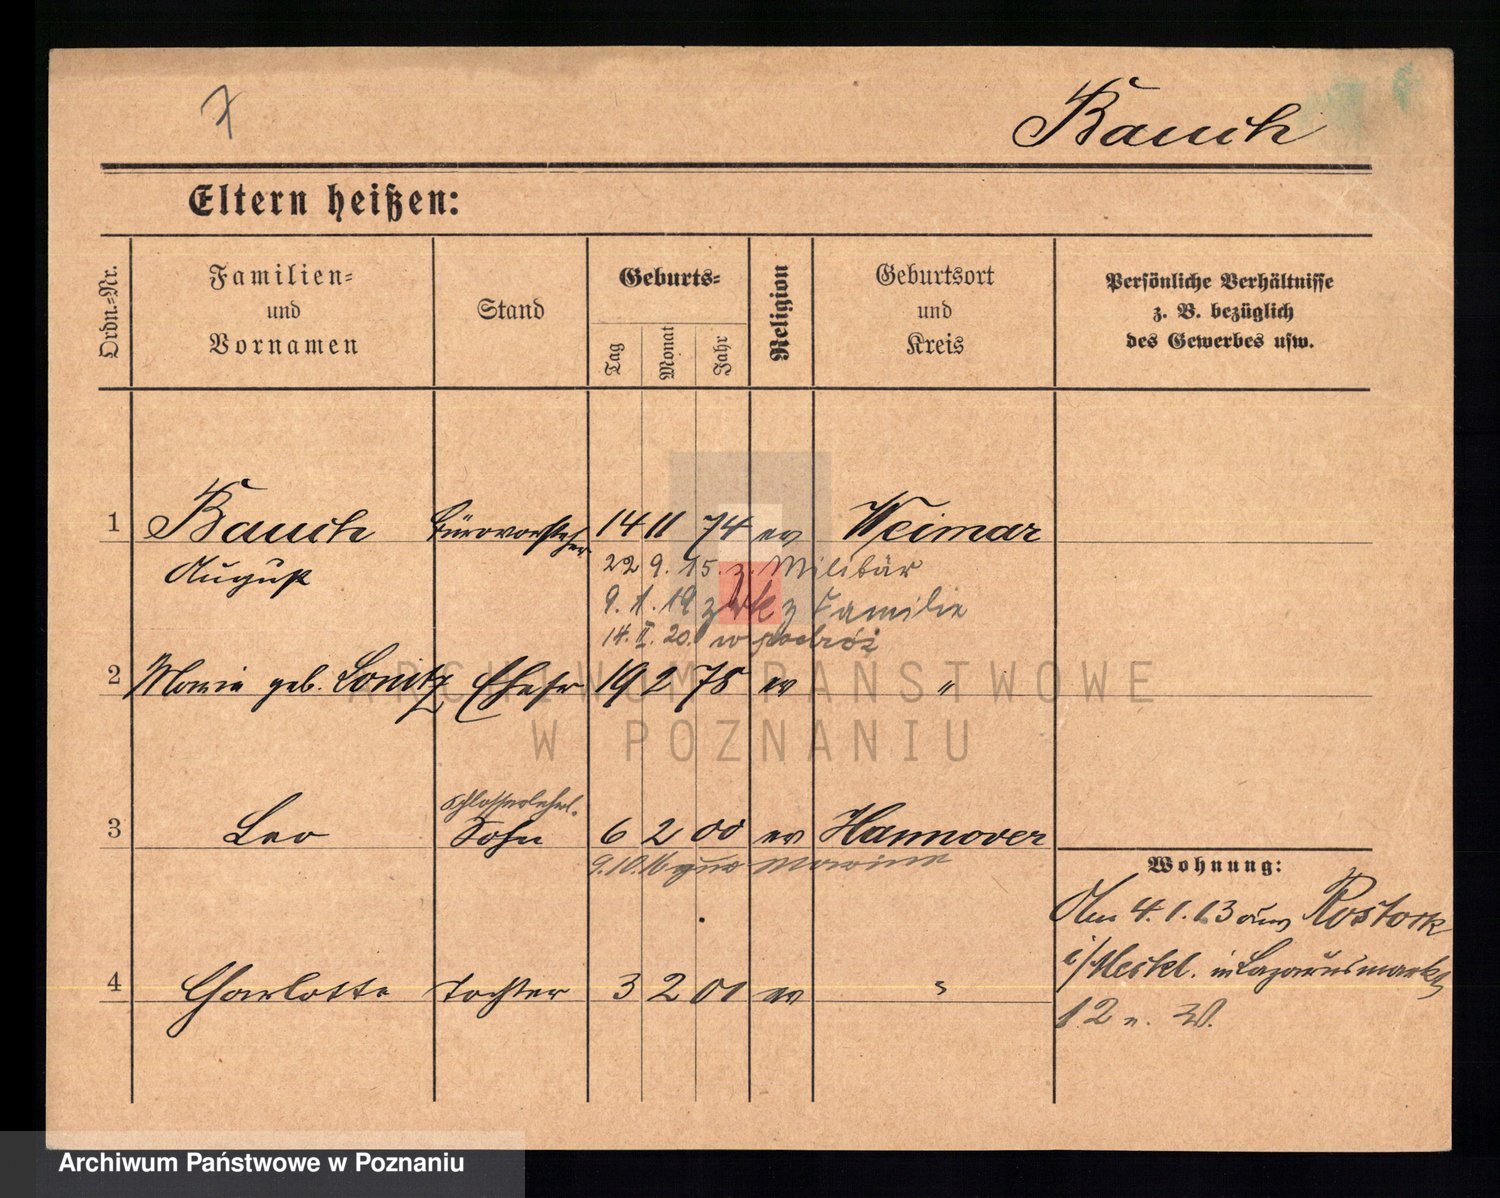 7
Bauch
Eltern heißen:
Ordn.-Nr.
Familien-
und
Vornamen
Stand
Geburts-
Tag
Monat
Jahr
Religion
Geburtsort
und
Kreis
Persönliche Verhältnisse
z. B. bezüglich
des Gewerbes usw.
1 Bauch Bürovorsteher 14 11 74 ev Weimar
August
22 9. 15. z. Militär
9. 1. 19 zrk z Familie
14. II. 20. w podróż
2 Marie geb. Ehefr 19 2 75 ev "
Schlosserlehrl.
3 Leo Sohn 6 2 00 ev Hannover
9.10.16 zur Marine
Wohnung:
Am 4.1.13 aus Rostock
i/Meckl. in Lazarusmarkt
12 n. W.
4 Charlotte Tochter 3 2 01 ev "
ARCHIWUM PAŃSTWOWE
W POZNANIU
Archiwum Państwowe w Poznaniu